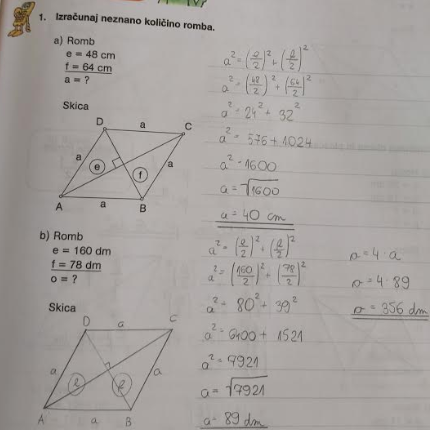 1. Izračunaj neznano količino romba.
a) Romb
e = 48 cm
f = 64 cm
a = ?
Skica
D a C
a e f a
A a B
a² = (e/2)² + (f/2)²
a² = (48/2)² + (64/2)²
a² = 24² + 32²
a² = 576 + 1024
a² = 1600
a = √1600
a = 40 cm
b) Romb
e = 160 dm
f = 78 dm
o = ?
Skica
D a C
a e f a
A a B
a² = (e/2)² + (f/2)²
a² = (160/2)² + (78/2)²
a² = 80² + 39²
a² = 6400 + 1521
a² = 7921
a = √7921
a = 89 dm
o = 4 · a
o = 4 · 89
o = 356 dm